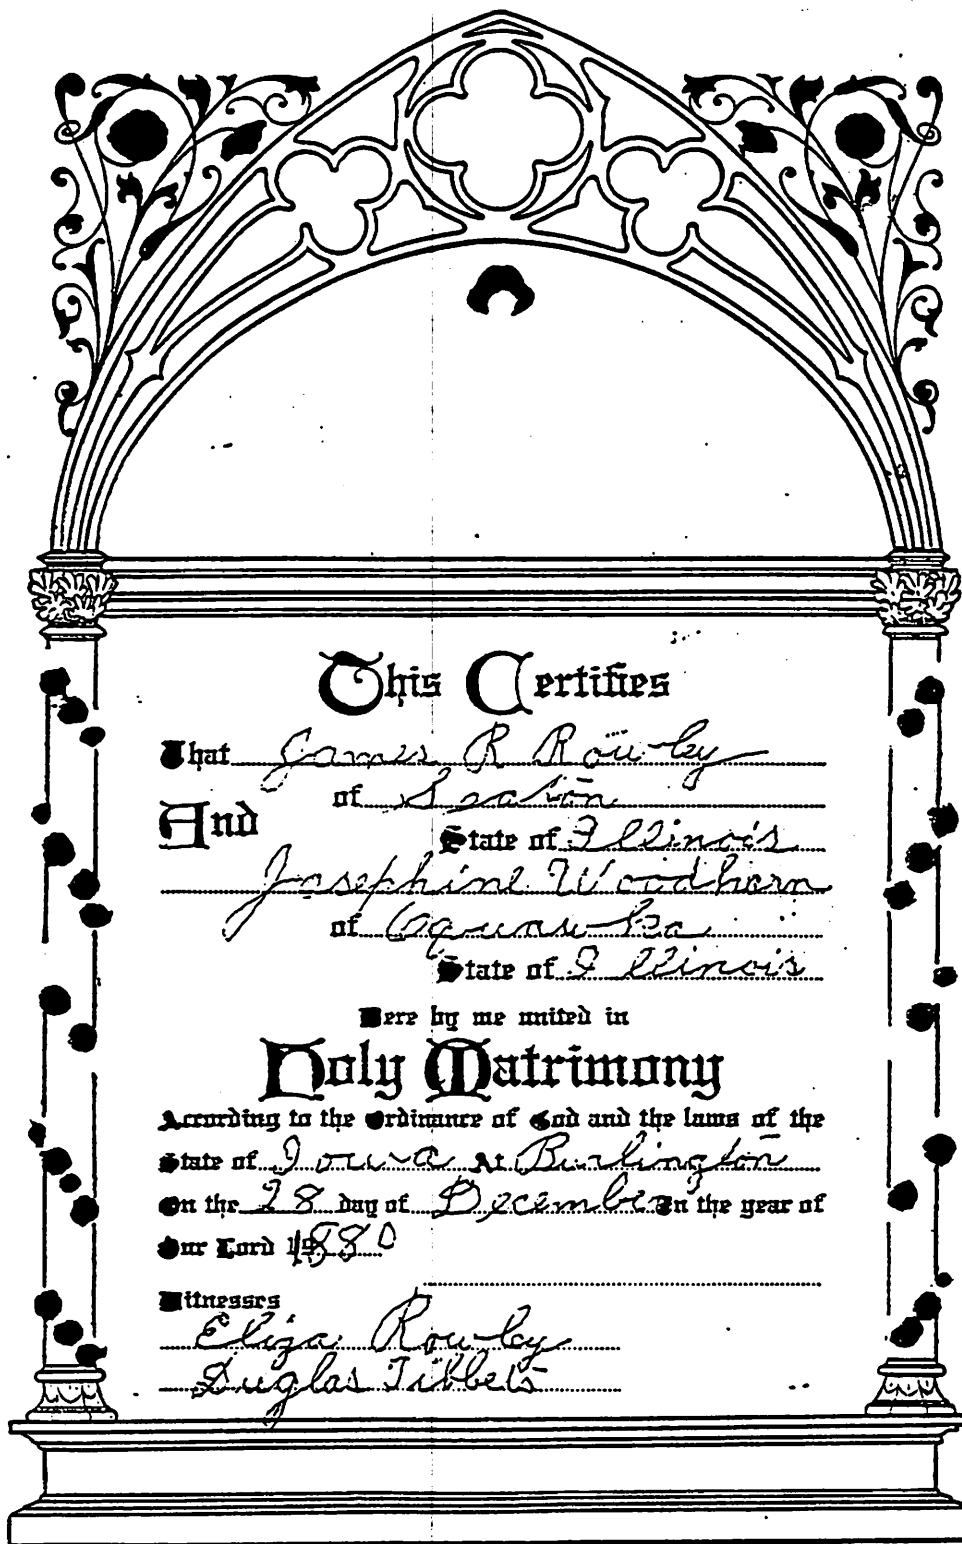 This Certifies
That James R Rowley
of Seaton
And
State of Illinois
Josephine Woodhern
of Oquawka
State of Illinois
Were by me united in
Holy Matrimony
According to the Ordinance of God and the laws of the
State of Iowa At Burlington
On the 28 day of December In the year of
Our Lord 1880
Witnesses
Eliza Rowley
Duglas Tibbets